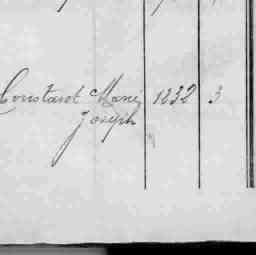 Constant Marie 1832 3
Joseph